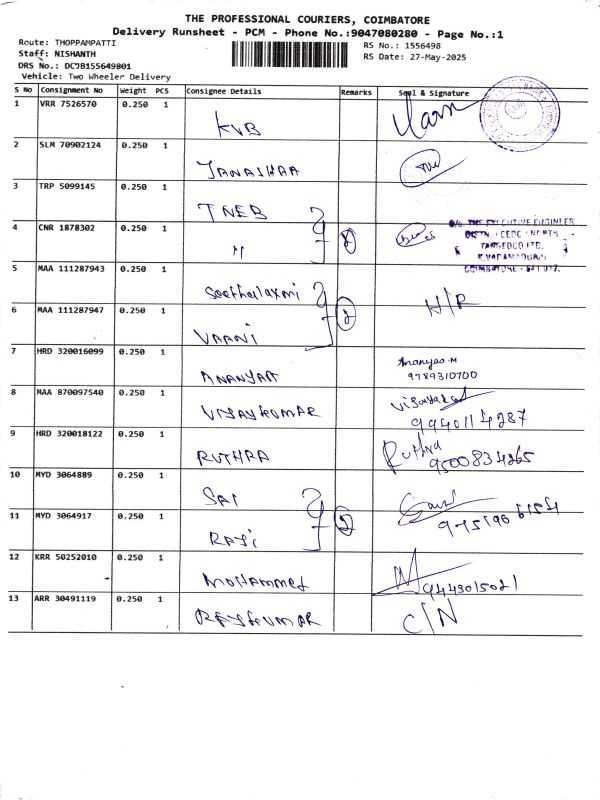 THE PROFESSIONAL COURIERS, COIMBATORE
Delivery Runsheet - PCM - Phone No.:9047080280 - Page No.:1
Route: THOPPAMPATTI
Staff: NISHANTH
DRS No.: DC9B155649801
Vehicle: Two Wheeler Delivery
RS No.: 1556498
RS Date: 27-May-2025
S No Consignment No Weight PCS Consignee Details Remarks Seal & Signature
1 VRR 7526570 0.250 1 KVB
2 SLM 70902124 0.250 1 JANAISHAA
3 TRP 5099145 0.250 1 TNEB
4 CNR 1878302 0.250 1 " 2
O/o. THE EXECUTIVE ENGINEER
DISTN. / CEDC / NORTH
TANGEDCO LTD.
K.VADAMADURAI
COIMBATORE - 641 017.
5 MAA 111287943 0.250 1 Seethalaxmi H/R
6 MAA 111287947 0.250 1 VAANI 2
7 HRD 320016099 0.250 1 ANANYAA Ananyaa.M
9789310700
8 MAA 870097540 0.250 1 VIJAYKUMAR Vijayakumar
9940114287
9 HRD 320018122 0.250 1 RUTHRA Ruthra
9500834265
10 MYD 3064889 0.250 1 SAI
11 MYD 3064917 0.250 1 RAJI 2 9751966154
12 KRR 50252010 0.250 1 MOHAMMED M 9443015021
13 ARR 30491119 0.250 1 RAJKUMAR C/N